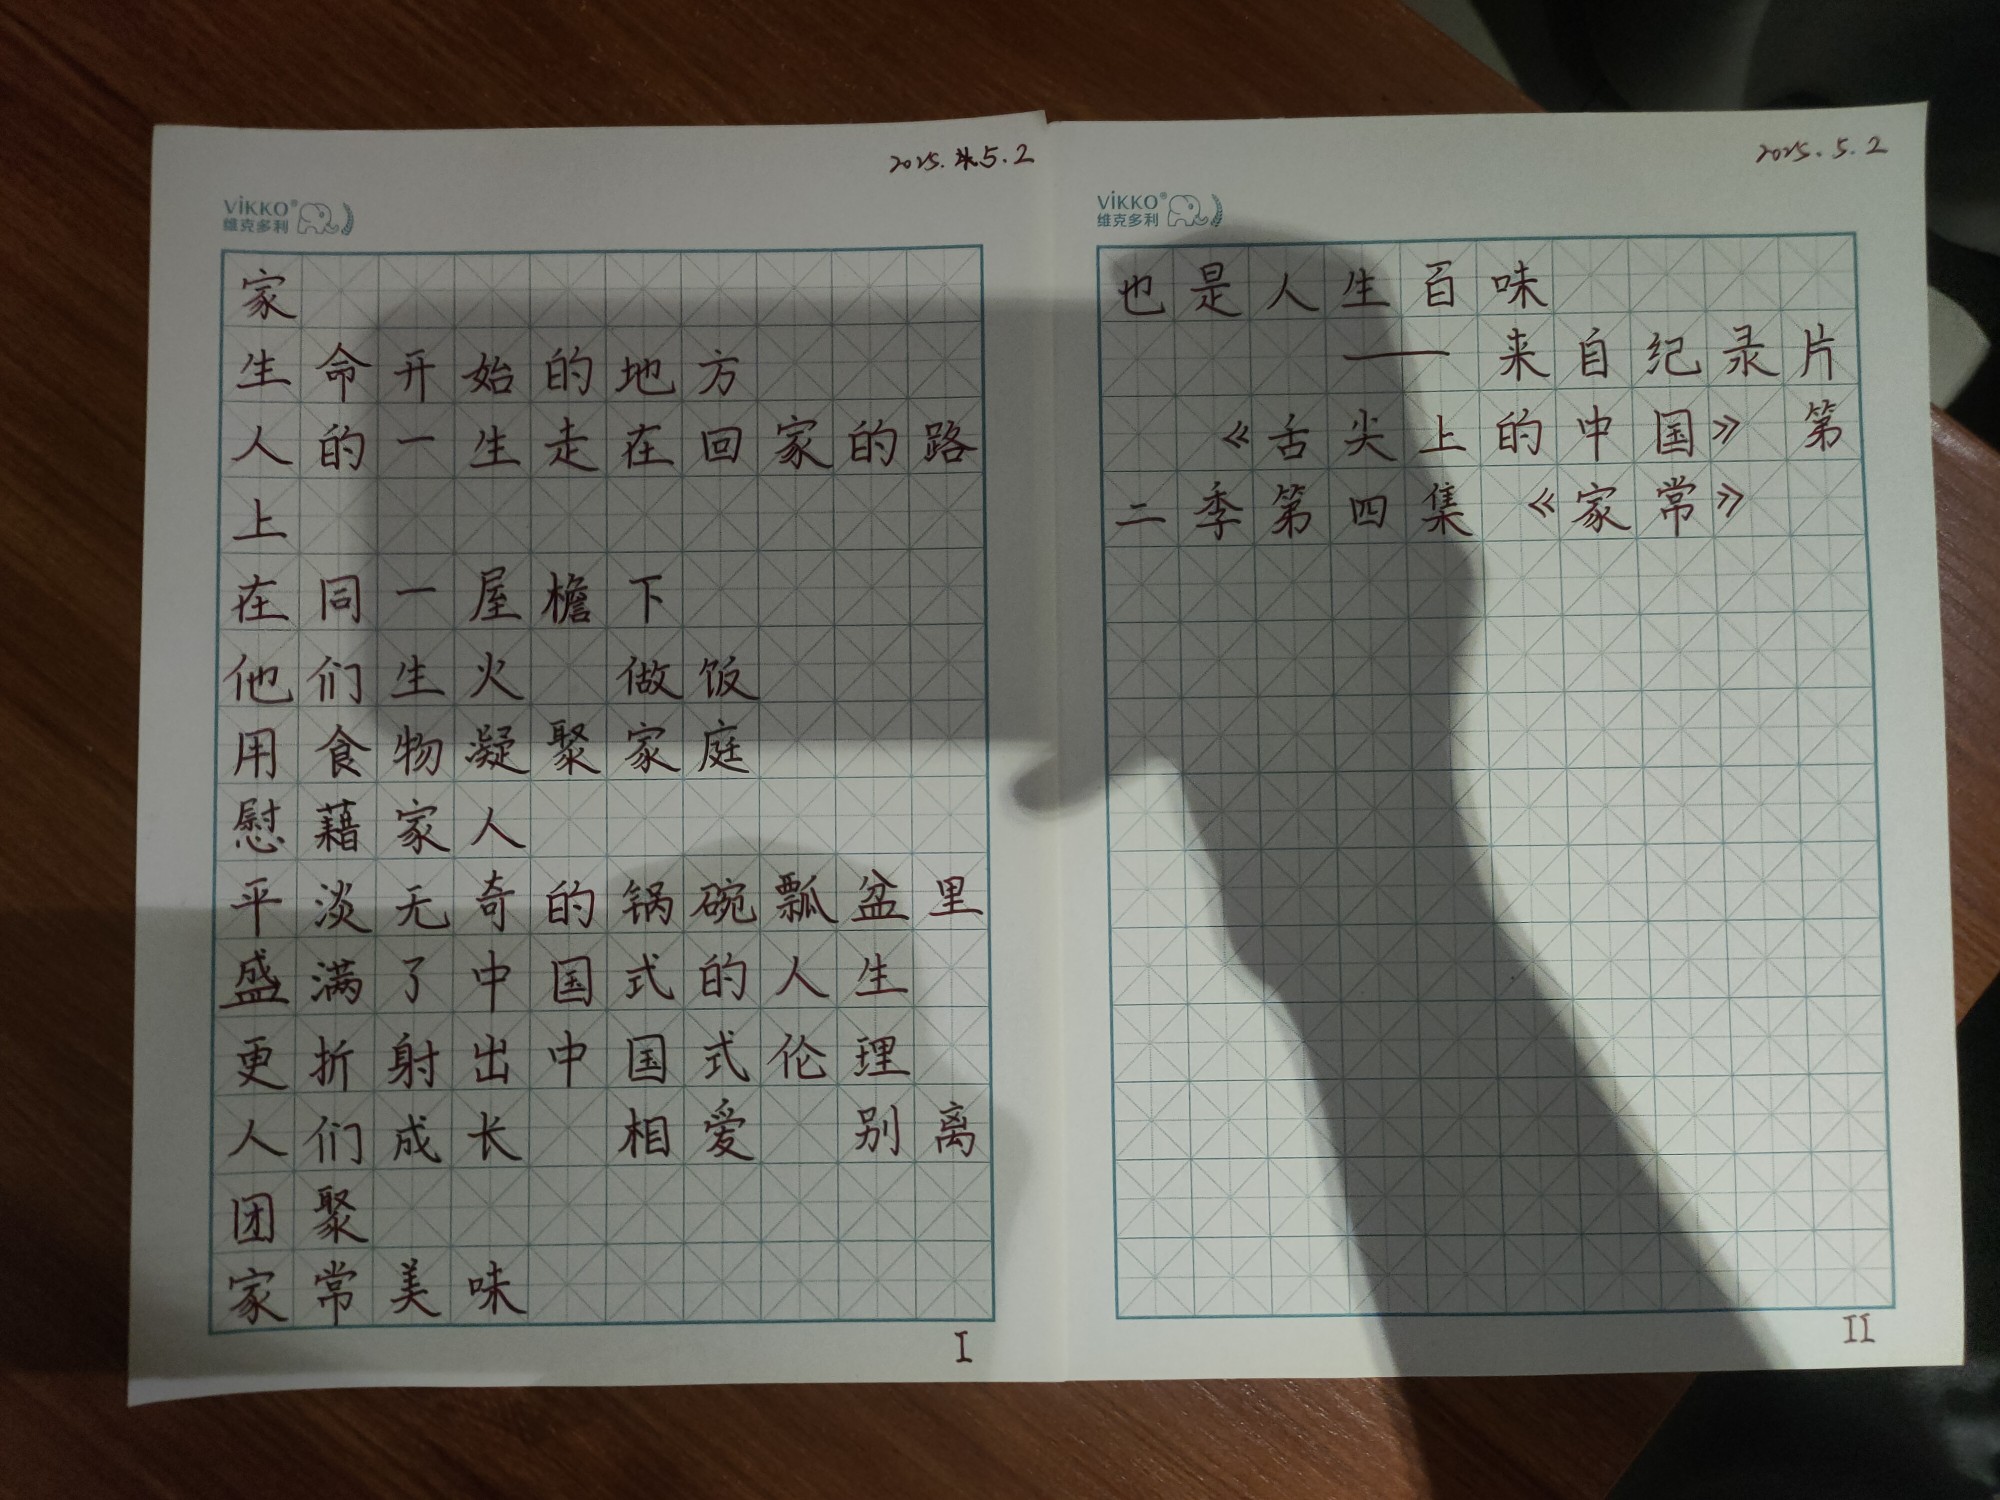 2025.5.2
VIKKO®
维克多利
家
生命开始的地方
人的一生走在回家的路
上
在同一屋檐下
他们生火 做饭
用食物凝聚家庭
慰藉家人
平淡无奇的锅碗瓢盆里
盛满了中国式的人生
更折射出中国式伦理
人们成长 相爱 别离
团聚
家常美味
I
2025.5.2
VIKKO®
维克多利
也是人生百味
——来自纪录片
《舌尖上的中国》第
二季第四集《家常》
II